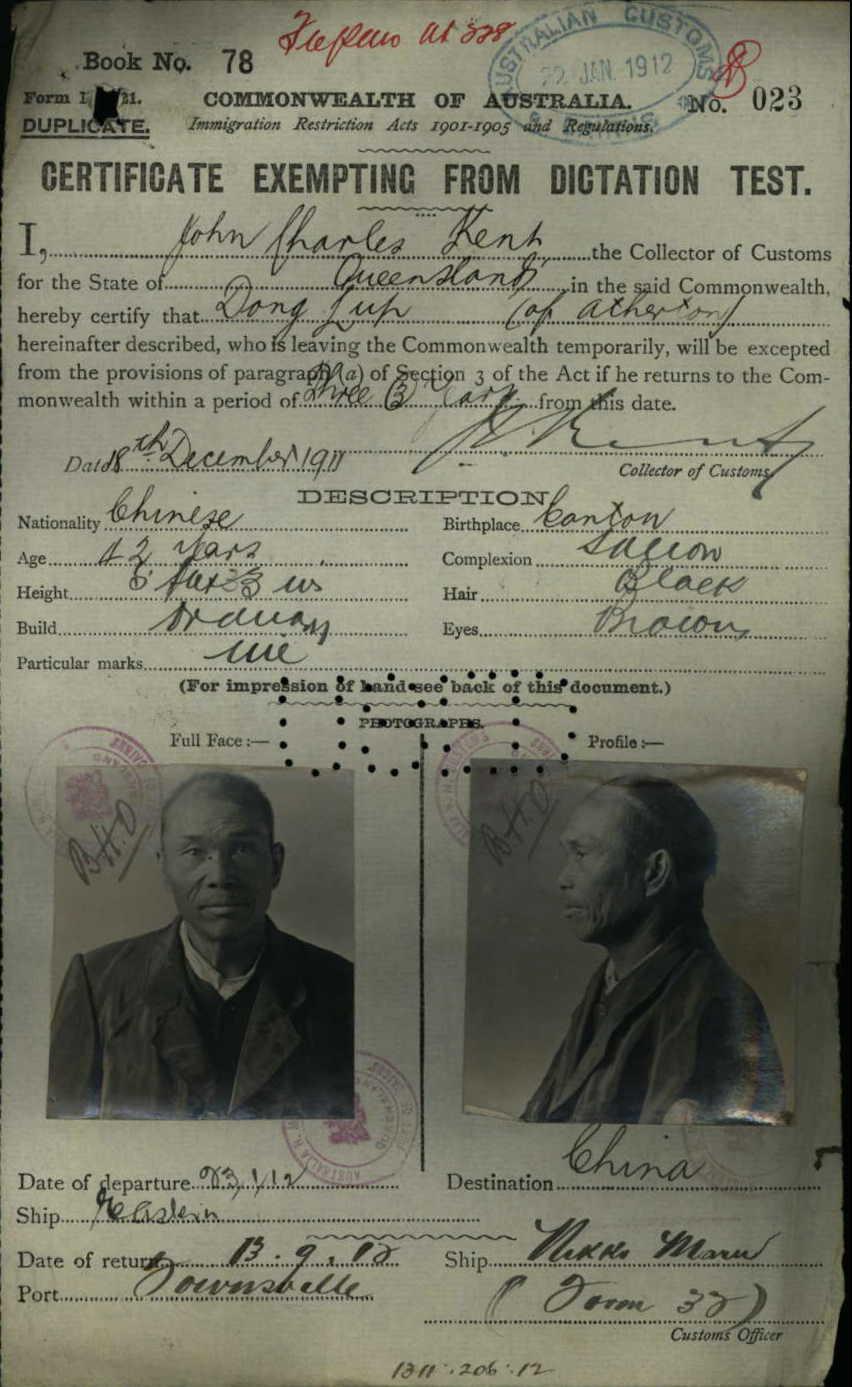 Book No. 78
AUSTRALIAN CUSTOMS
22 JAN. 1912
Form 21.
COMMONWEALTH OF AUSTRALIA.
No. 023
DUPLICATE.
Immigration Restriction Acts 1901-1905 and Regulations.
CERTIFICATE EXEMPTING FROM DICTATION TEST.
I, John Charles Kent the Collector of Customs
for the State of Queensland in the said Commonwealth,
hereby certify that Dong Jup (of Atherton)
hereinafter described, who is leaving the Commonwealth temporarily, will be excepted
from the provisions of paragraph (a) of Section 3 of the Act if he returns to the Com-
monwealth within a period of Three (3) Years from this date.
Date 18th December 1911
Collector of Customs
DESCRIPTION
Nationality Chinese
Birthplace Canton
Age 42 Years
Complexion Sallow
Height 5 feet 3 ins
Hair Black
Build Ordinary
Eyes Brown
Particular marks
(For impression of hand see back of this document.)
PHOTOGRAPHS.
Full Face :—
Profile :—
B.H.O
B.H.O
Date of departure 23.1.12
Destination China
Ship Eastern
Date of return 13.9.12
Ship Nikko Maru
Port Townsville
(Form 32)
Customs Officer
1311.206.12